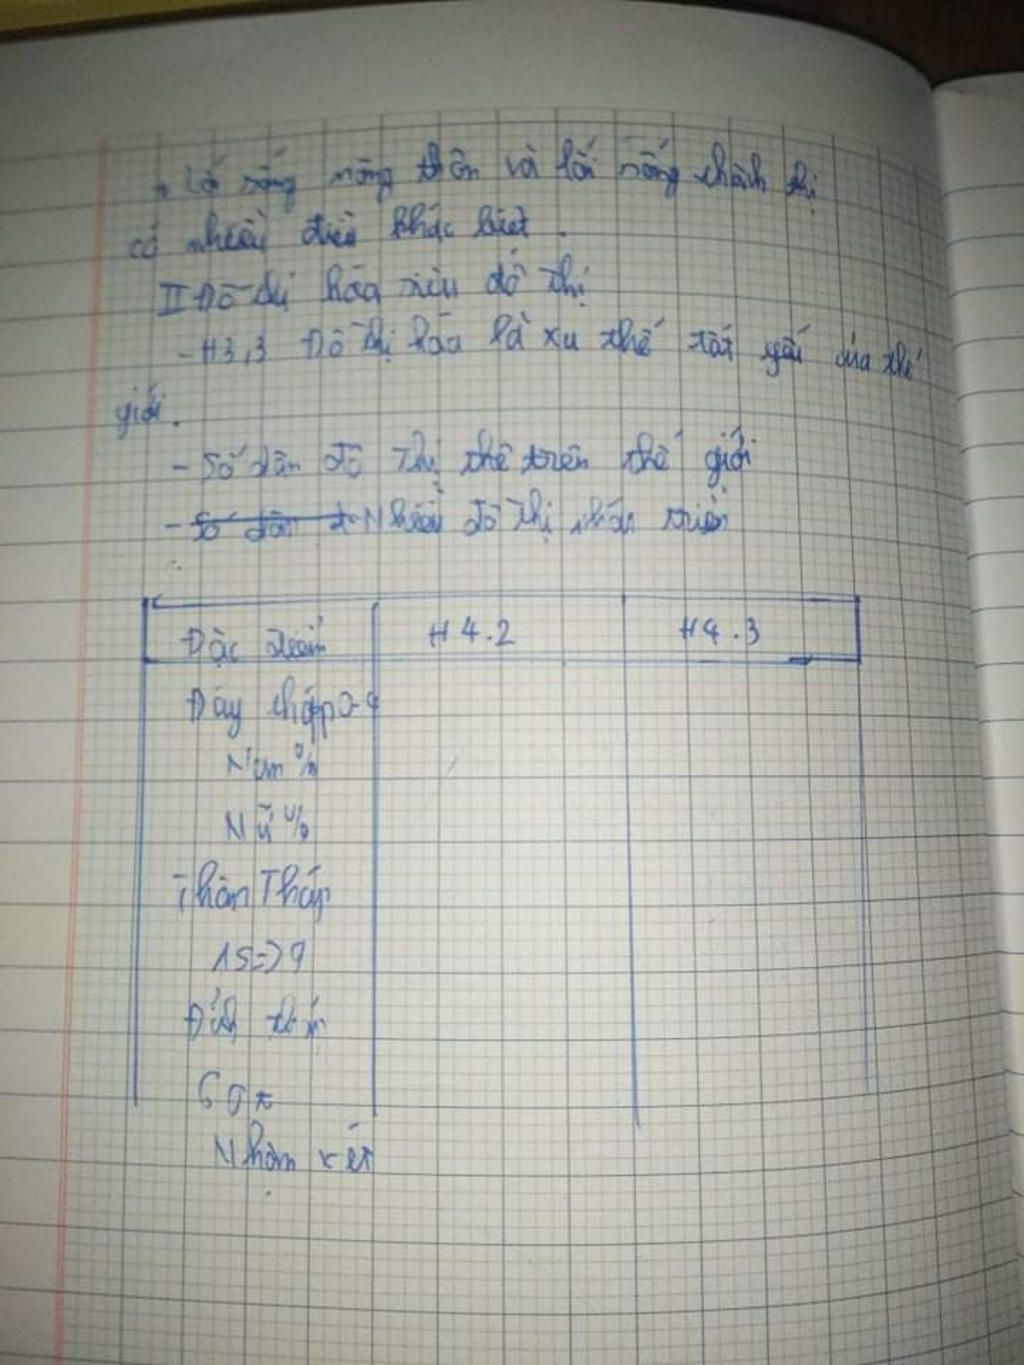 + Lối sống nông thôn và lối sống thành thị
có nhiều điểm khác biệt.
II Đô thị hóa siêu đô thị
- H3,3 Đô thị hóa là xu thế tất yếu của thế
giới.
- Số dân đô Thị thê trên thế giới
- Số dân đ Nhiều đô thị phát triển
Đặc điểm H4.2 H4.3
Đáy tháp 0-9
Nam %
Nữ %
Thân Tháp
15=>9
Đỉnh tháp
60
Nhận xét